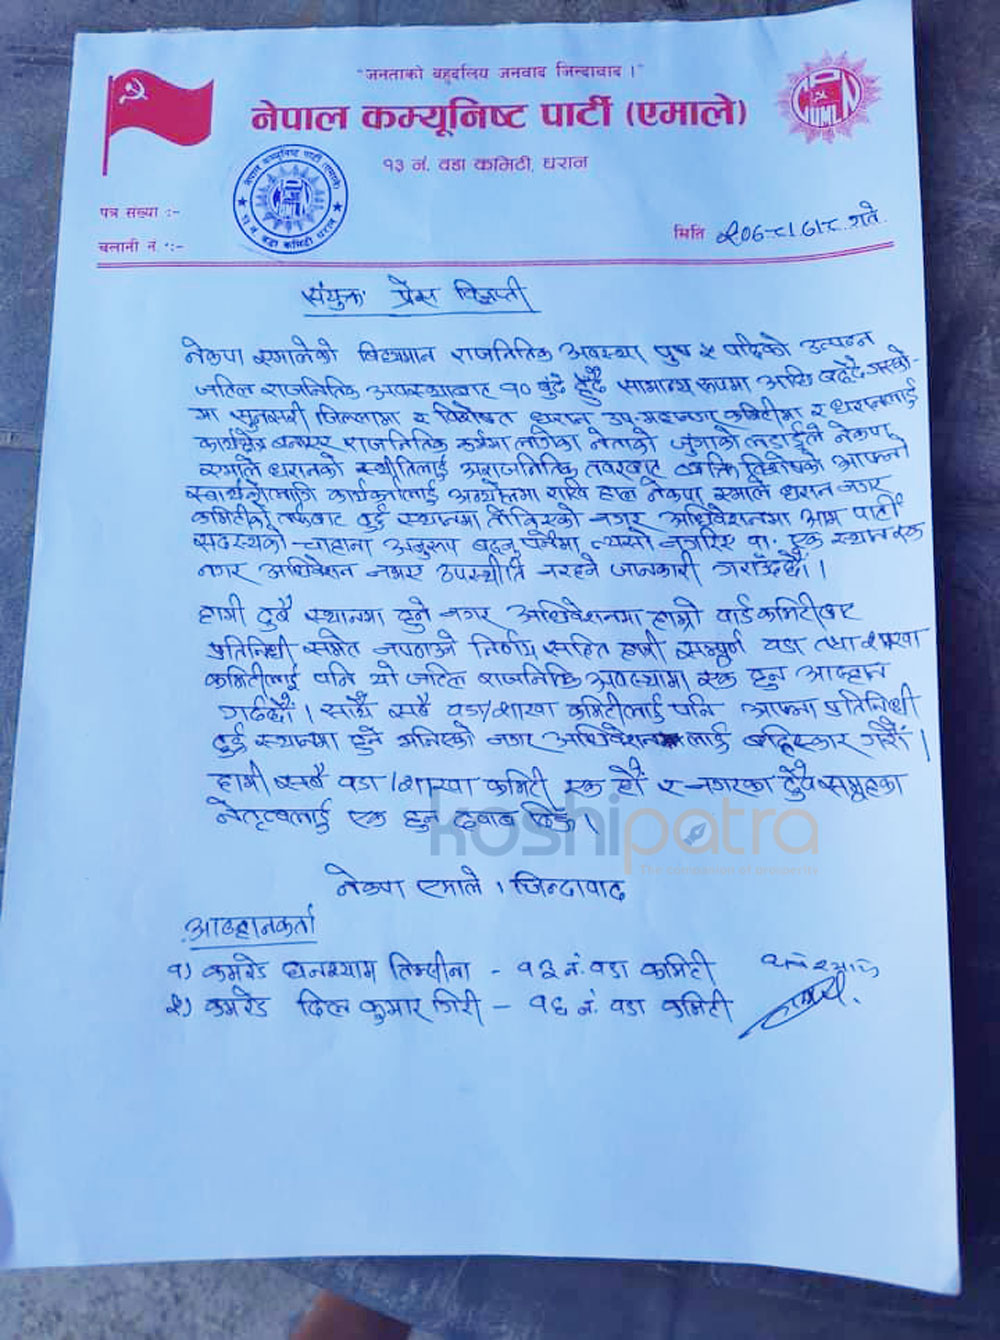 "जनताको बहुदलिय जनवाद जिन्दावाद ।"
नेपाल कम्यूनिष्ट पार्टी (एमाले)
१३ नं. वडा कमिटी, धरान
CPN UML
नेपाल कम्यूनिष्ट पार्टी (एमाले)
१३ नं. वडा कमिटी धरान
पत्र संख्या :-
चलानी नं. :-
मिति २०७८।६।८ गते
संयुक्त प्रेस विज्ञप्ती
नेकपा एमालेको विद्यमान राजनितिक अवस्था पुष ५ पछिको उत्पन्न
जटिल राजनितिक अवस्थाबाट १० बुँदे हुँदै सामान्य रूपमा अघि बढ्दै गएको-
मा सुनसरी जिल्लामा र विशेषत धरान उप-महानगर कमिटीमा र धरानलाई
कार्यक्षेत्र बनाएर राजनितिक कर्ममा लागेका नेताको जुंगाको लडाईले नेकपा
एमाले धरानको स्थीतिलाई अराजनितिक तवरबाट व्यक्ति विशेषको आफ्नो
स्वार्थकोलागि कार्यकर्तालाई अन्योलमा राखि हाल नेकपा एमाले धरान नगर
कमिटीको तर्फबाट दुई स्थानमा तोकिएको नगर अधिवेशनमा आम पार्टी
सदस्यको चाहाना अनुरूप बढ्नु पर्नेमा त्यसो नगरिए वा. एक स्थान एक
नगर अधिवेशन नभए उपस्थीति नरहने जानकारी गराउँदछौं ।
हामी दुबै स्थानमा हुने नगर अधिवेशनमा हाम्रो वार्ड कमिटीबाट
प्रतिनिधी समेत नपठाउने निर्णय सहित हामी सम्पूर्ण वडा तथा शाखा
कमिटीलाई पनि यो जटिल राजनितिक अवस्थामा एक हुन आव्हान
गर्दछौं । साथै सबै वडा/शाखा कमिटीलाई पनि आफ्ना प्रतिनिधी
दुई स्थानमा हुने भनिएको नगर अधिवेशनलाई बहिस्कार गरौं ।
हामी सबै वडा/शाखा कमिटी एक हौं र नगरका दुवै समूहका
नेतृत्वलाई एक हुन दवाव दिऔं ।
koshipatra
The companion of prosperity
नेकपा एमाले । जिन्दावाद
आव्हानकर्ता
१) कमरेड घनश्याम तिम्सीना - १३ नं. वडा कमिटी
२) कमरेड दिल कुमार गिरी - १६ नं. वडा कमिटी